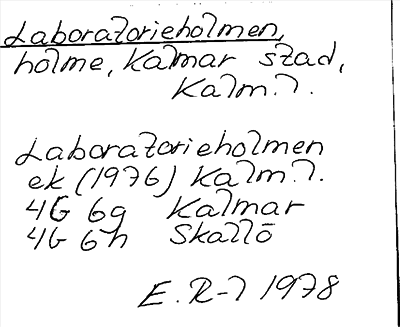 Laboratorieholmen,
holme, Kalmar stad,
Kalm. l.
Laboratorieholmen
ek (1976) Kalm. l.
4G 6g Kalmar
4G 6h Skallö
E. R-l 1978